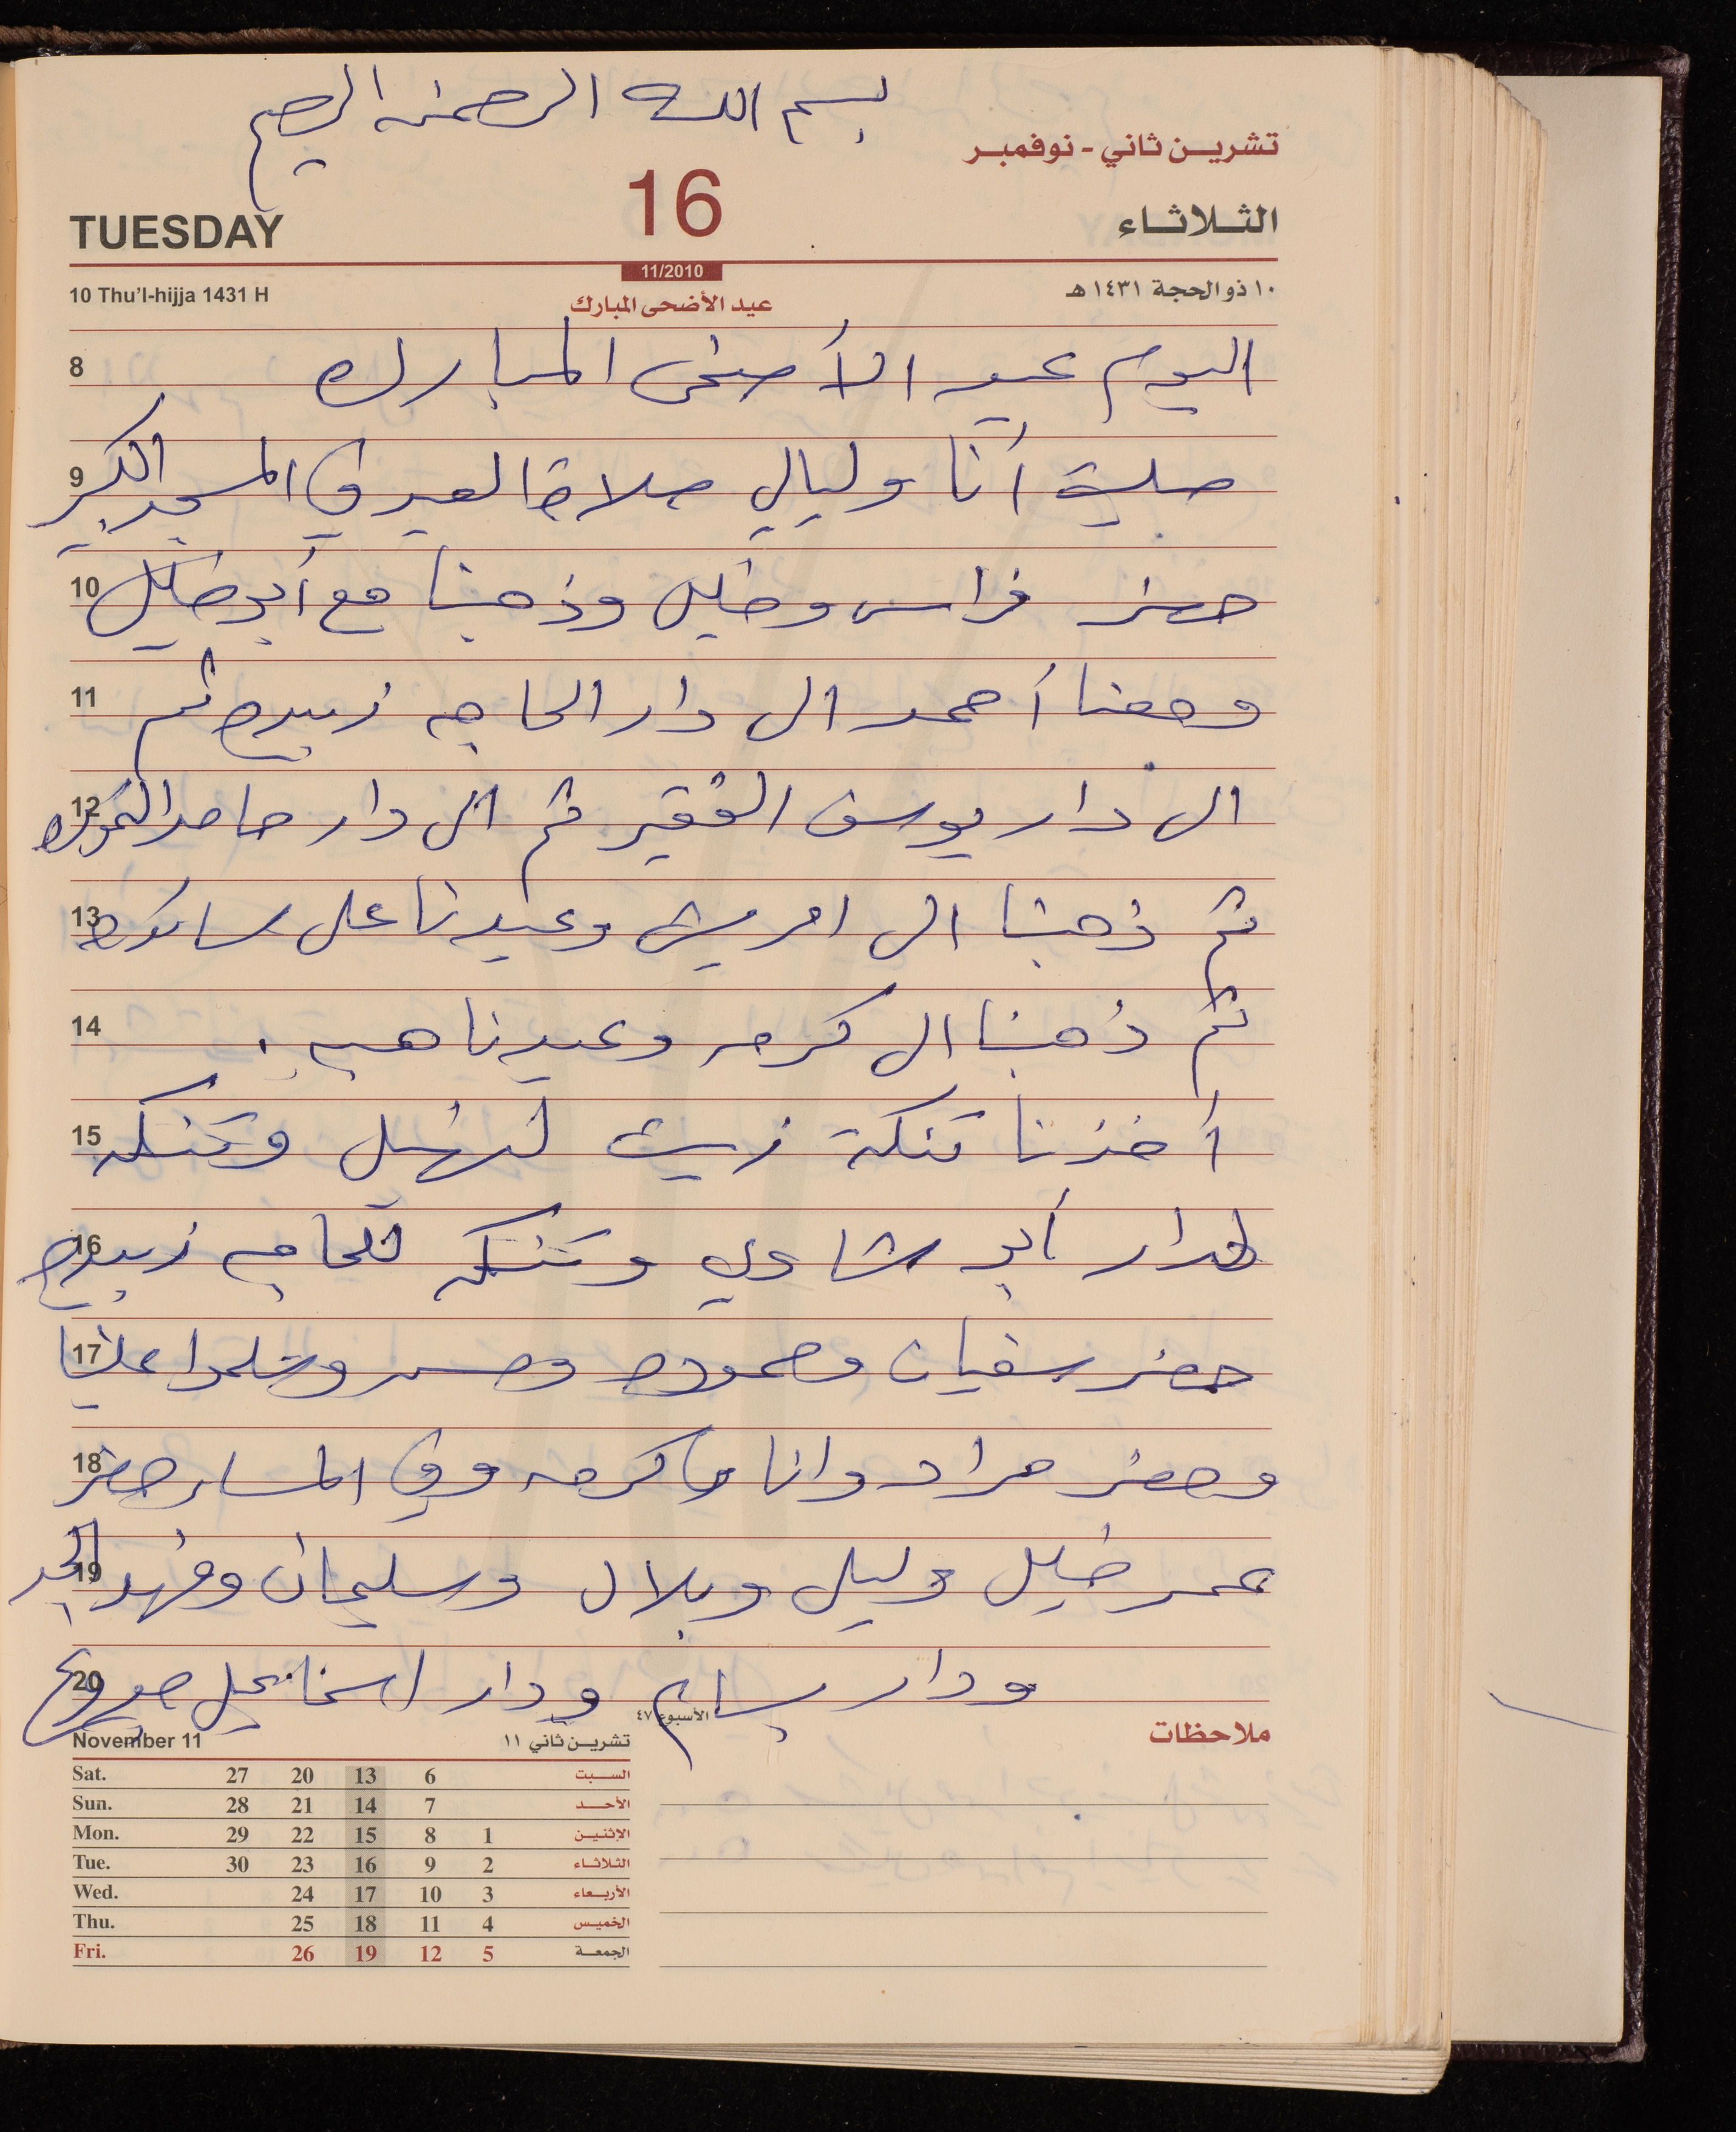 بسم الله الرحمن الرحيم
تشرين ثاني - نوفمبر
TUESDAY 16 الثلاثاء
11/2010
10 Thu'l-hijja 1431 H ١٠ ذو الحجة ١٤٣١ هـ
عيد الأضحى المبارك
8 اليوم عيد الأضحى المبارك
9 صليت أنا وليالي صلاة العيد في المسجد الكبير
10 حضر فراس وخليل وذهبنا مع أبو خليل
11 ومعنا أحمد الى دار الحاجه زبيده ثم
12 الى دار يوسف الفقير ثم الى دار حامد
13 ثم ذهبنا الى امريش وعيدنا على
14 ثم ذهبنا الى كرمه وعيدنا هبه .
15 أخذنا تنكة زيت لنهيل وتنكه
16 لدار أبو شادي وتنكه للحاجه زبيده
17 حضر سفيان وحموده وسلموا علينا
18 وحضر مراد وانا في كرمه وفي المساء حضر
19 عمر خليل وليل وبلال وسليمان وفهد
20 ودار بسام ودار اسماعيل
الأسبوع ٤٧
ملاحظات
November 11 تشرين ثاني ١١
Sat. 27 20 13 6 السبت
Sun. 28 21 14 7 الأحد
Mon. 29 22 15 8 1 الإثنين
Tue. 30 23 16 9 2 الثلاثاء
Wed. 24 17 10 3 الأربعاء
Thu. 25 18 11 4 الخميس
Fri. 26 19 12 5 الجمعة